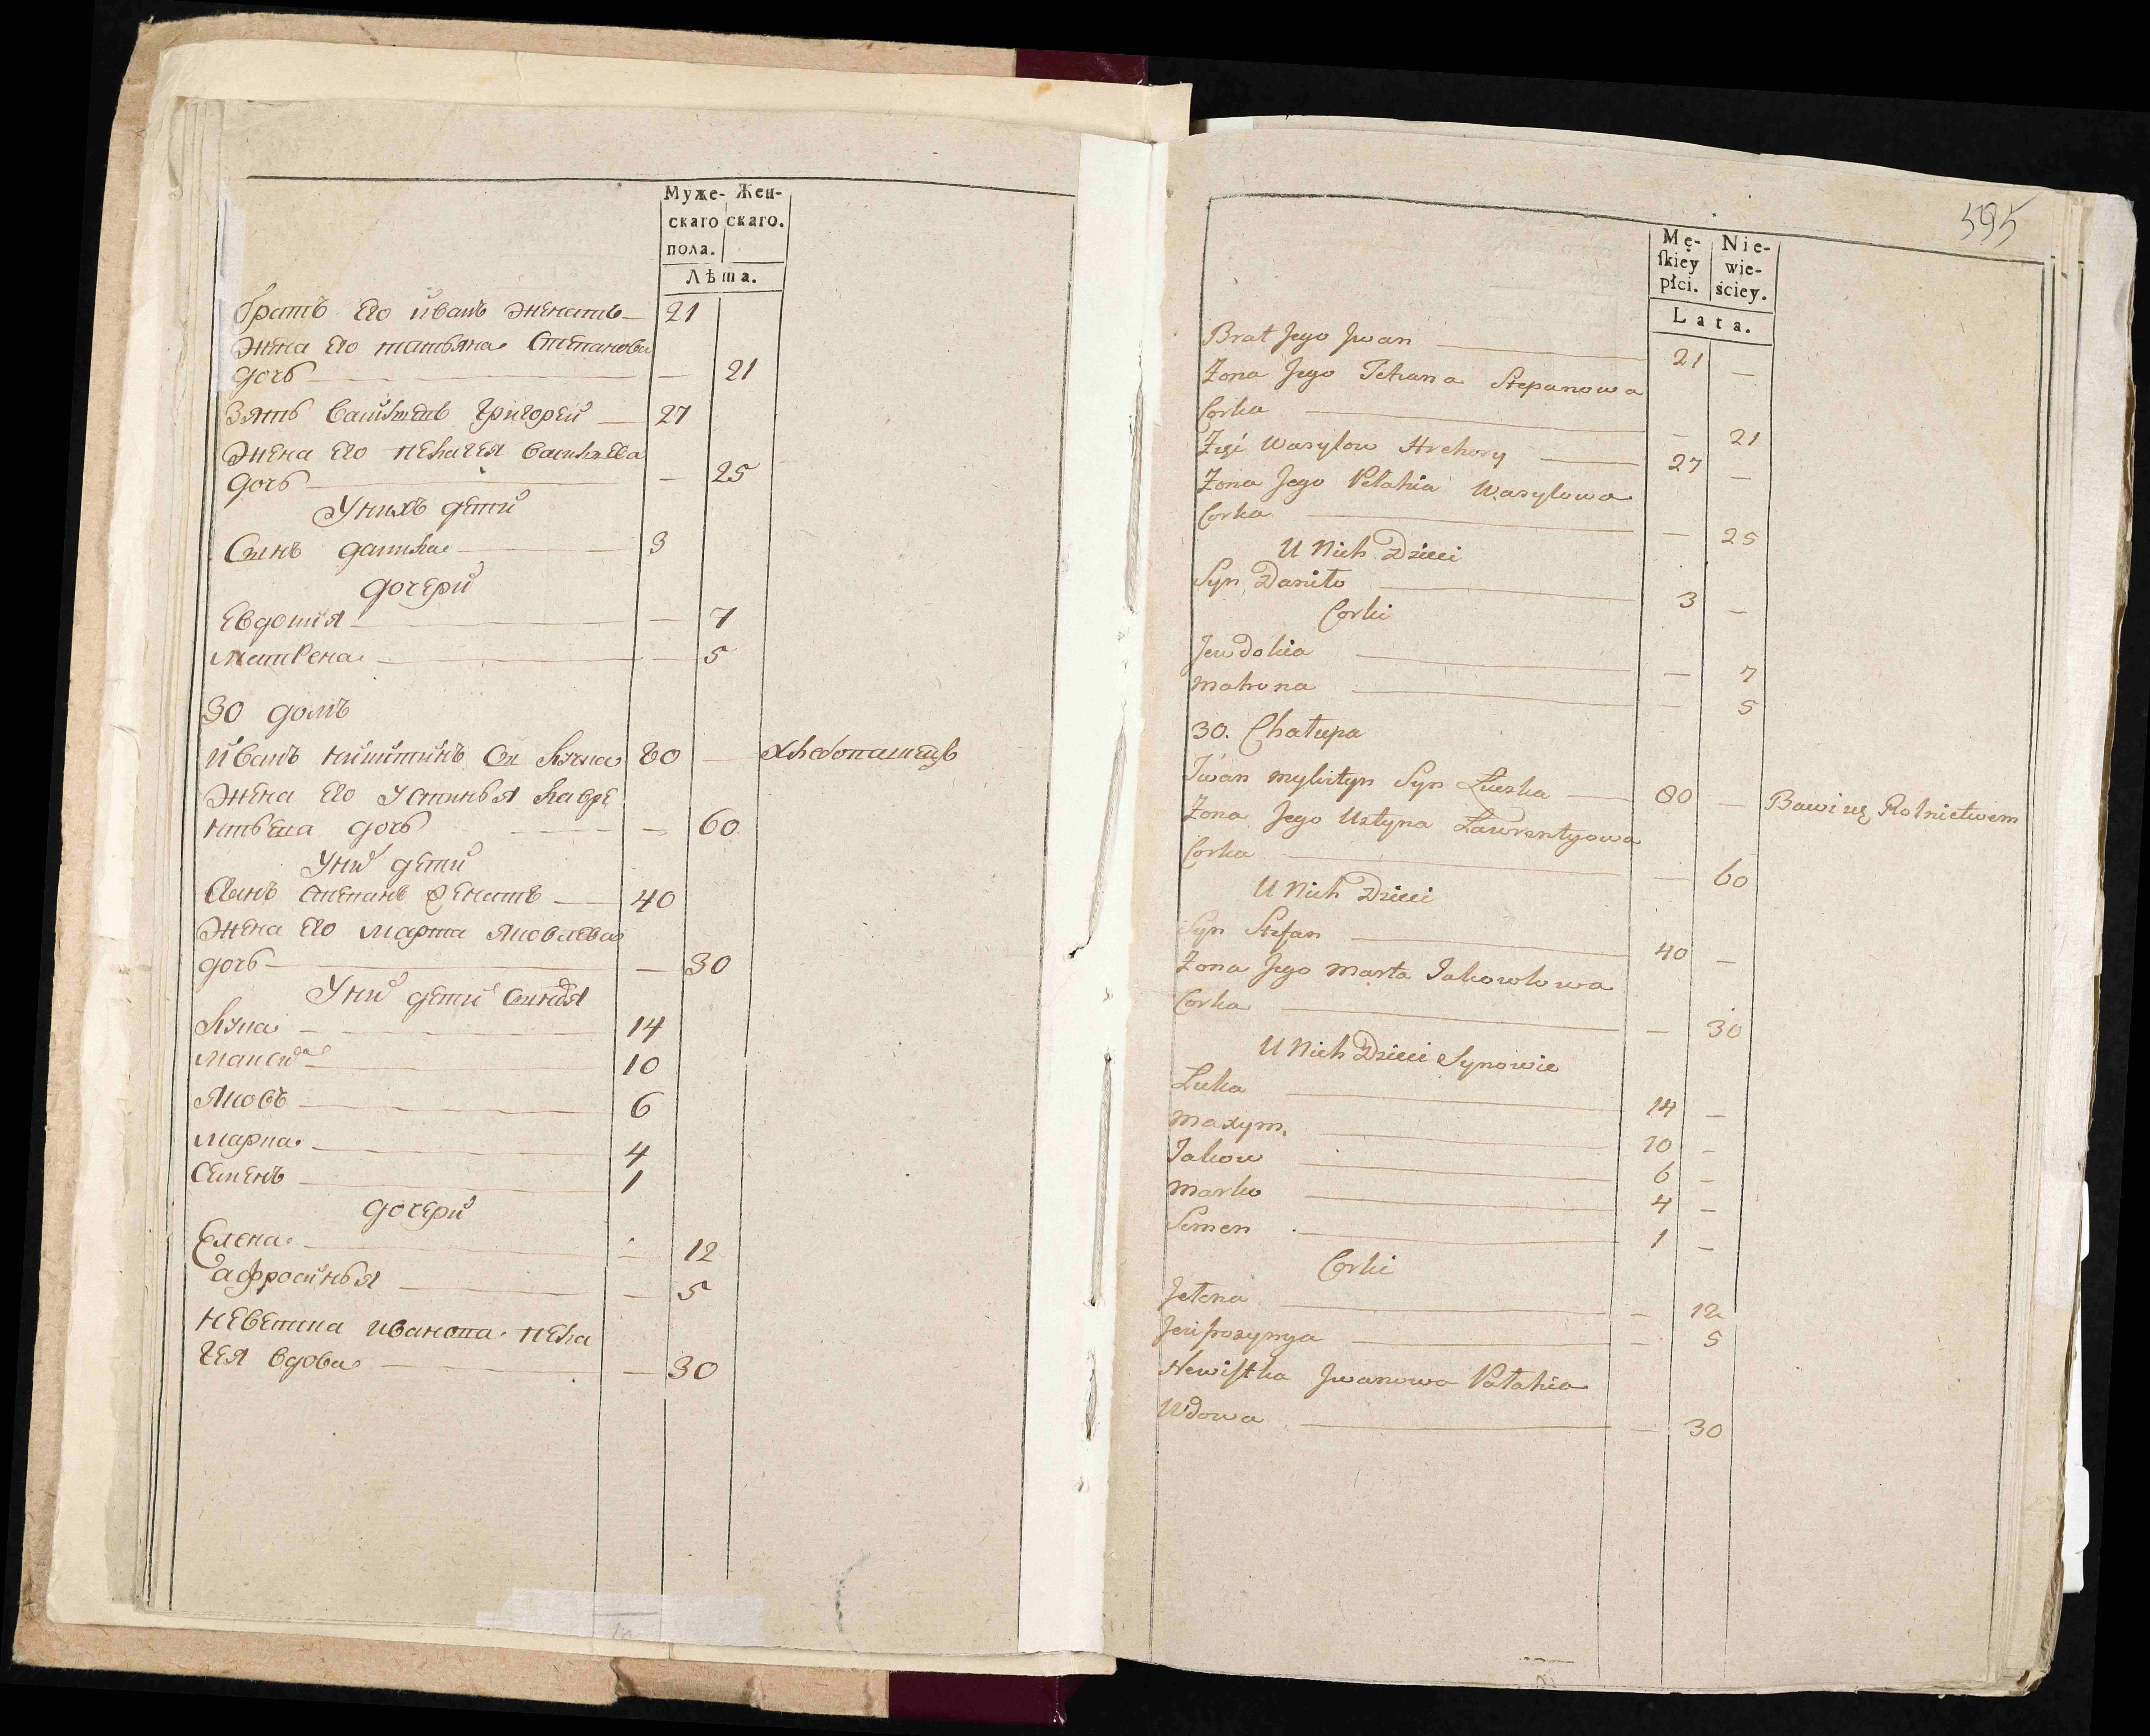 Муже- Жен-
скаго скаго.
пола.
Лѣта.
братъ Его иванъ женатъ 21
жена Его татьяна Степанова
дочь — 21
Зять Васильевъ Григорей 27
жена Его пелагея васильева
дочь — 25
У нихъ дети
Сынъ данила 3
дочери
Евдотия — 7
матрена — 5
30 домъ
иванъ никитинъ Сн лучка 80 — хлебопашецъ
жена Его Устинья лавре
нтьева дочь — 60
У них дети
Сынъ степанъ женатъ 40
жена Его марта яковлева
дочь — 30
У них дети Сыновья
лука 14
максимъ 10
яковъ 6
марка 4
Семенъ 1
дочери
Елена — 12
афросинья — 5
невестка иванова пела
гея вдова — 30
595
Mę- Nie-
ſkiey wie-
płci. ściey.
Lata.
Brat Jego Jwan 21 —
Żona Jego Tetiana Stepanowa
Corka — 21
Zięć Wasylow Hrehory 27 —
Żona Jego Pelahia Wasylowa
Corka — 25
U Nich Dzieci
Syn Daniło 3 —
Corki
Jewdokia — 7
Matrona — 5
30. Chałupa
Iwan Mykityn Syn Łuczka 80 — Bawi się Rolnictwem
Żona Jego Ustyna Ławrentyowa
Corka — 60
U Nich Dzieci
Syn Stefan 40 —
Żona Jego Marta Jakowłowa
Corka — 30
U Nich Dzieci Synowie
Łuka 14 —
Maxym. 10 —
Jakow 6 —
Marko 4 —
Semen 1 —
Corki
Jełena — 12
Jeufrozynya — 5
Newiſtka Jwanowa Pałahia
Wdowa — 30